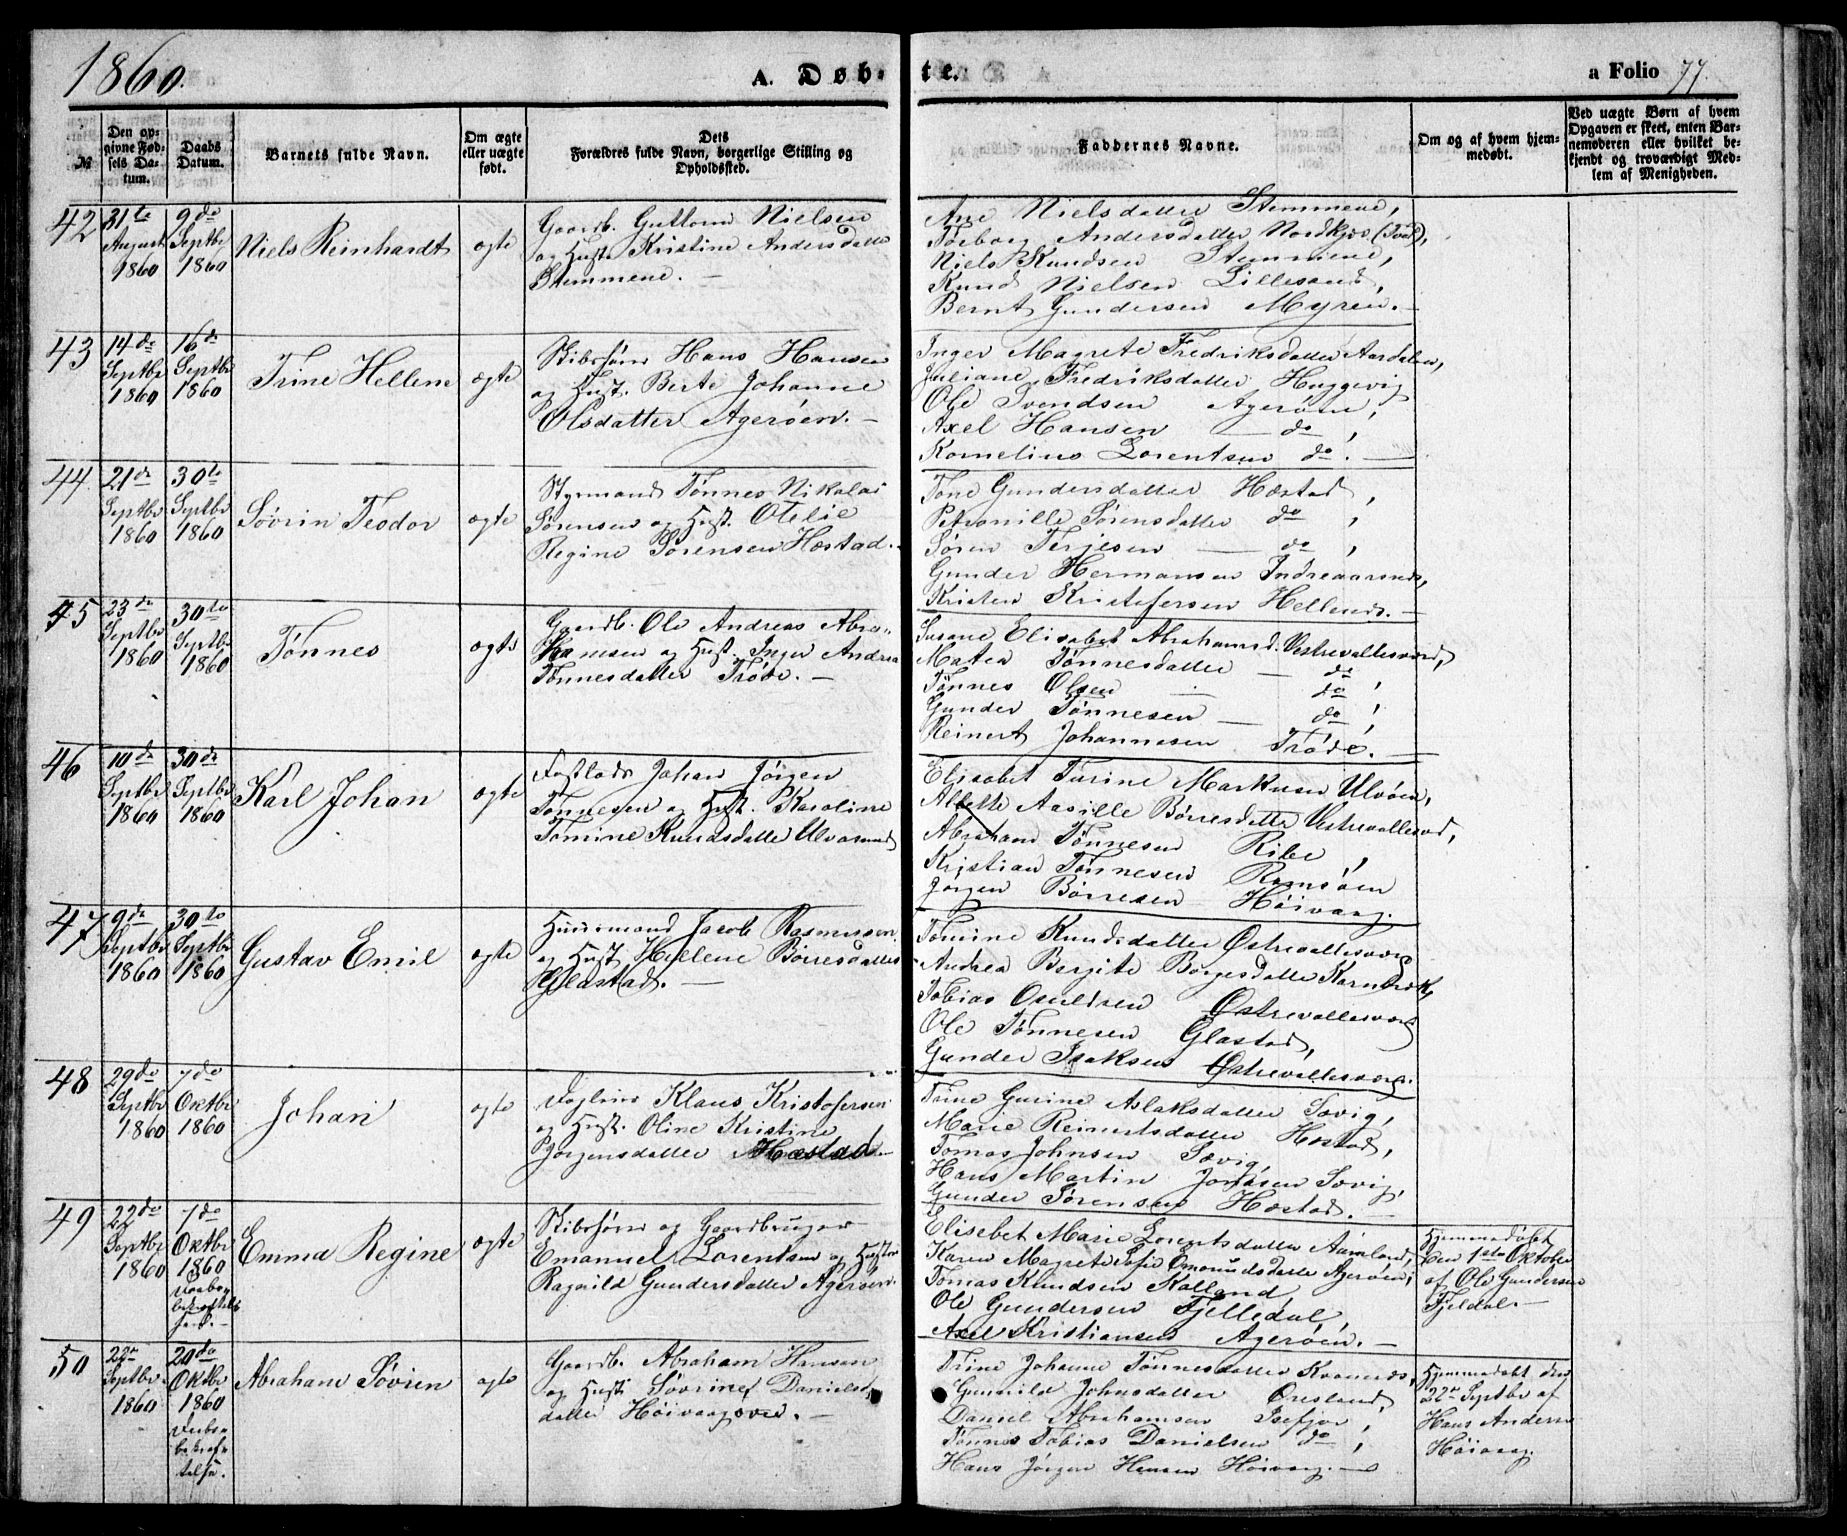 1860.
A. Døb-
te.
a Folio 77.
№
Den op-
givne Fød-
sels Da-
tum.
Daabs
Datum.
Barnets fulde Navn.
Om ægte
eller uægte
født.
Dets
Forældres fulde Navn, borgerlige Stilling og
Opholdssted.
Faddernes Navne.
Om og af hvem hjem-
medøbt.
Ved uægte Børn af hvem
Opgaven er skeet, enten Bar-
nemoderen eller hvilket be-
kjendt og troværdigt Med-
lem af Menigheden.
42
31te
August
1860
9de
Septbr
1860
Niels Reinhardt
ægte
Gaardb. Guttorm Nielsen
og Hust. Kristine Andersdatter
Stemmene. —
Ane Nielsdatter Stemmene,
Torborg Andersdatter Nordkjos
Niels Knudsen Stemmene,
Knud Nielsen Lillesand,
Bernt Gundersen Myren. —
43
14de
Septbr
1860
16de
Septbr
1860
Trine Hellene
ægte
Skibsfører Hans Hansen
og Hust. Berte Johanne
Olsdatter Agerøen. —
Inger Magrete Fredriksdatter Aardalen,
Juliane Fredriksdatter Huggevig
Ole Svendsen Agerøen,
Axel Hansen — do,
Kornelius Lorentsen do. —
44
21de
Septbr
1860
30te
Septbr
1860
Søvrin Teodor
ægte
Styrmand Tønnes Nikolai
Sørensen og Hust. Otelie
Regine Sørensen Hæstad. —
Tone Gundersdatter Hæstad,
Petronille Sørensdatter do,
Søren Terjesen — do,
Gunder Hermansen Indreaarsnes,
Kristen Kristofersen Hellenes. —
45
23de
Septbr
1860
30te
Septbr
1860
Tønnes
ægte
Gaardb. Ole Andreas Abra-
hamsen og Hust. Inger Andrea
Tønnesdatter Trøde. —
Susane Elisabet Abrahamsd. Vestrevallesverd,
Matea Tønnesdatter — do
Tønnes Olsen do,
Gunder Tønnesen — do,
Reinert Johannesen Trøde. —
46
10de
Septbr
1860
30de
Septbr
1860
Karl Johan
ægte
Johan Jørgen
Tønnesen og Hust. Karoline
Tomine Knudsdatter Ulvøsund
Elisabet Turine Markusen Ulvøen,
Aasille Børresdatter Vestrevallesverd,
Abraham Tønnesen Ribe,
Kristian Tønnesen Ramsøen
Jørgen Børresen Høivaag.
47
9de
Septbr
1860
30te
Septbr
1860
Gustav Emil
ægte
Huusmand Jacob Rasmussen
og Hust. Hellene Børresdatter
Glastad. —
Tomine Knudsdatter Østrevallesverd
Andrea Bergite Børgesdatter
Tobias Osuldsen Østrevallesverd
Ole Tønnesen Glastad,
Gunder Isaksen Østrevallesverd.
48
29de
Septbr
1860
7de
Oktbr
1860
Johan
ægte
Daglønr Klaus Kristofersen
og Hust. Oline Kristine
Jørgensdatter Hæstad —
Trine Gurine Aslaksdatter Sævig,
Marie Reinertsdatter Hæstad,
Tomas Johnsen Sævig,
Hans Martin Johnsen Sævig,
Gunder Sørensen Hæstad. —
49
22de
Septbr
1860
7de
Oktbr
1860
Daabsbe-
kræftelse. —
Emma Regine
ægte
Skibsfører og Gaardbruger
Emanuel Lorentsen og Hustru
Ragnild Gundersdatter Agerøen.
Elisebet Marie Lorentsdatter Aamland,
Karen Magrete Sofie Omundsdatter Agerøen,
Tomas Knudsen Kalland,
Ole Gundersen Fjelledal,
Axel Kristiansen Agerøen. —
Hjemmedøbt
den 1ste Oktober
af Ole Gundersen
Fjeldal. —
50
22de
Septbr
1860
20de
Oktbr
1860
Daabs-
bekræf-
telse.
Abraham Søvrin
ægte
Gaardb. Abraham Hansen
og Hust. Søvrine Daniels-
datter Høivaagsver. —
Trine Johanne Tønnesdatter Kvannes,
Gunnild Johnsdatter Øresland,
Daniel Abrahamsen Isefjær,
Tønnes Tobias Danielsen do,
Hans Jørgen Hansen Høivaag. —
Hjemmedøbt den
22de Septbr af
Hans Andersen
Høivaag.